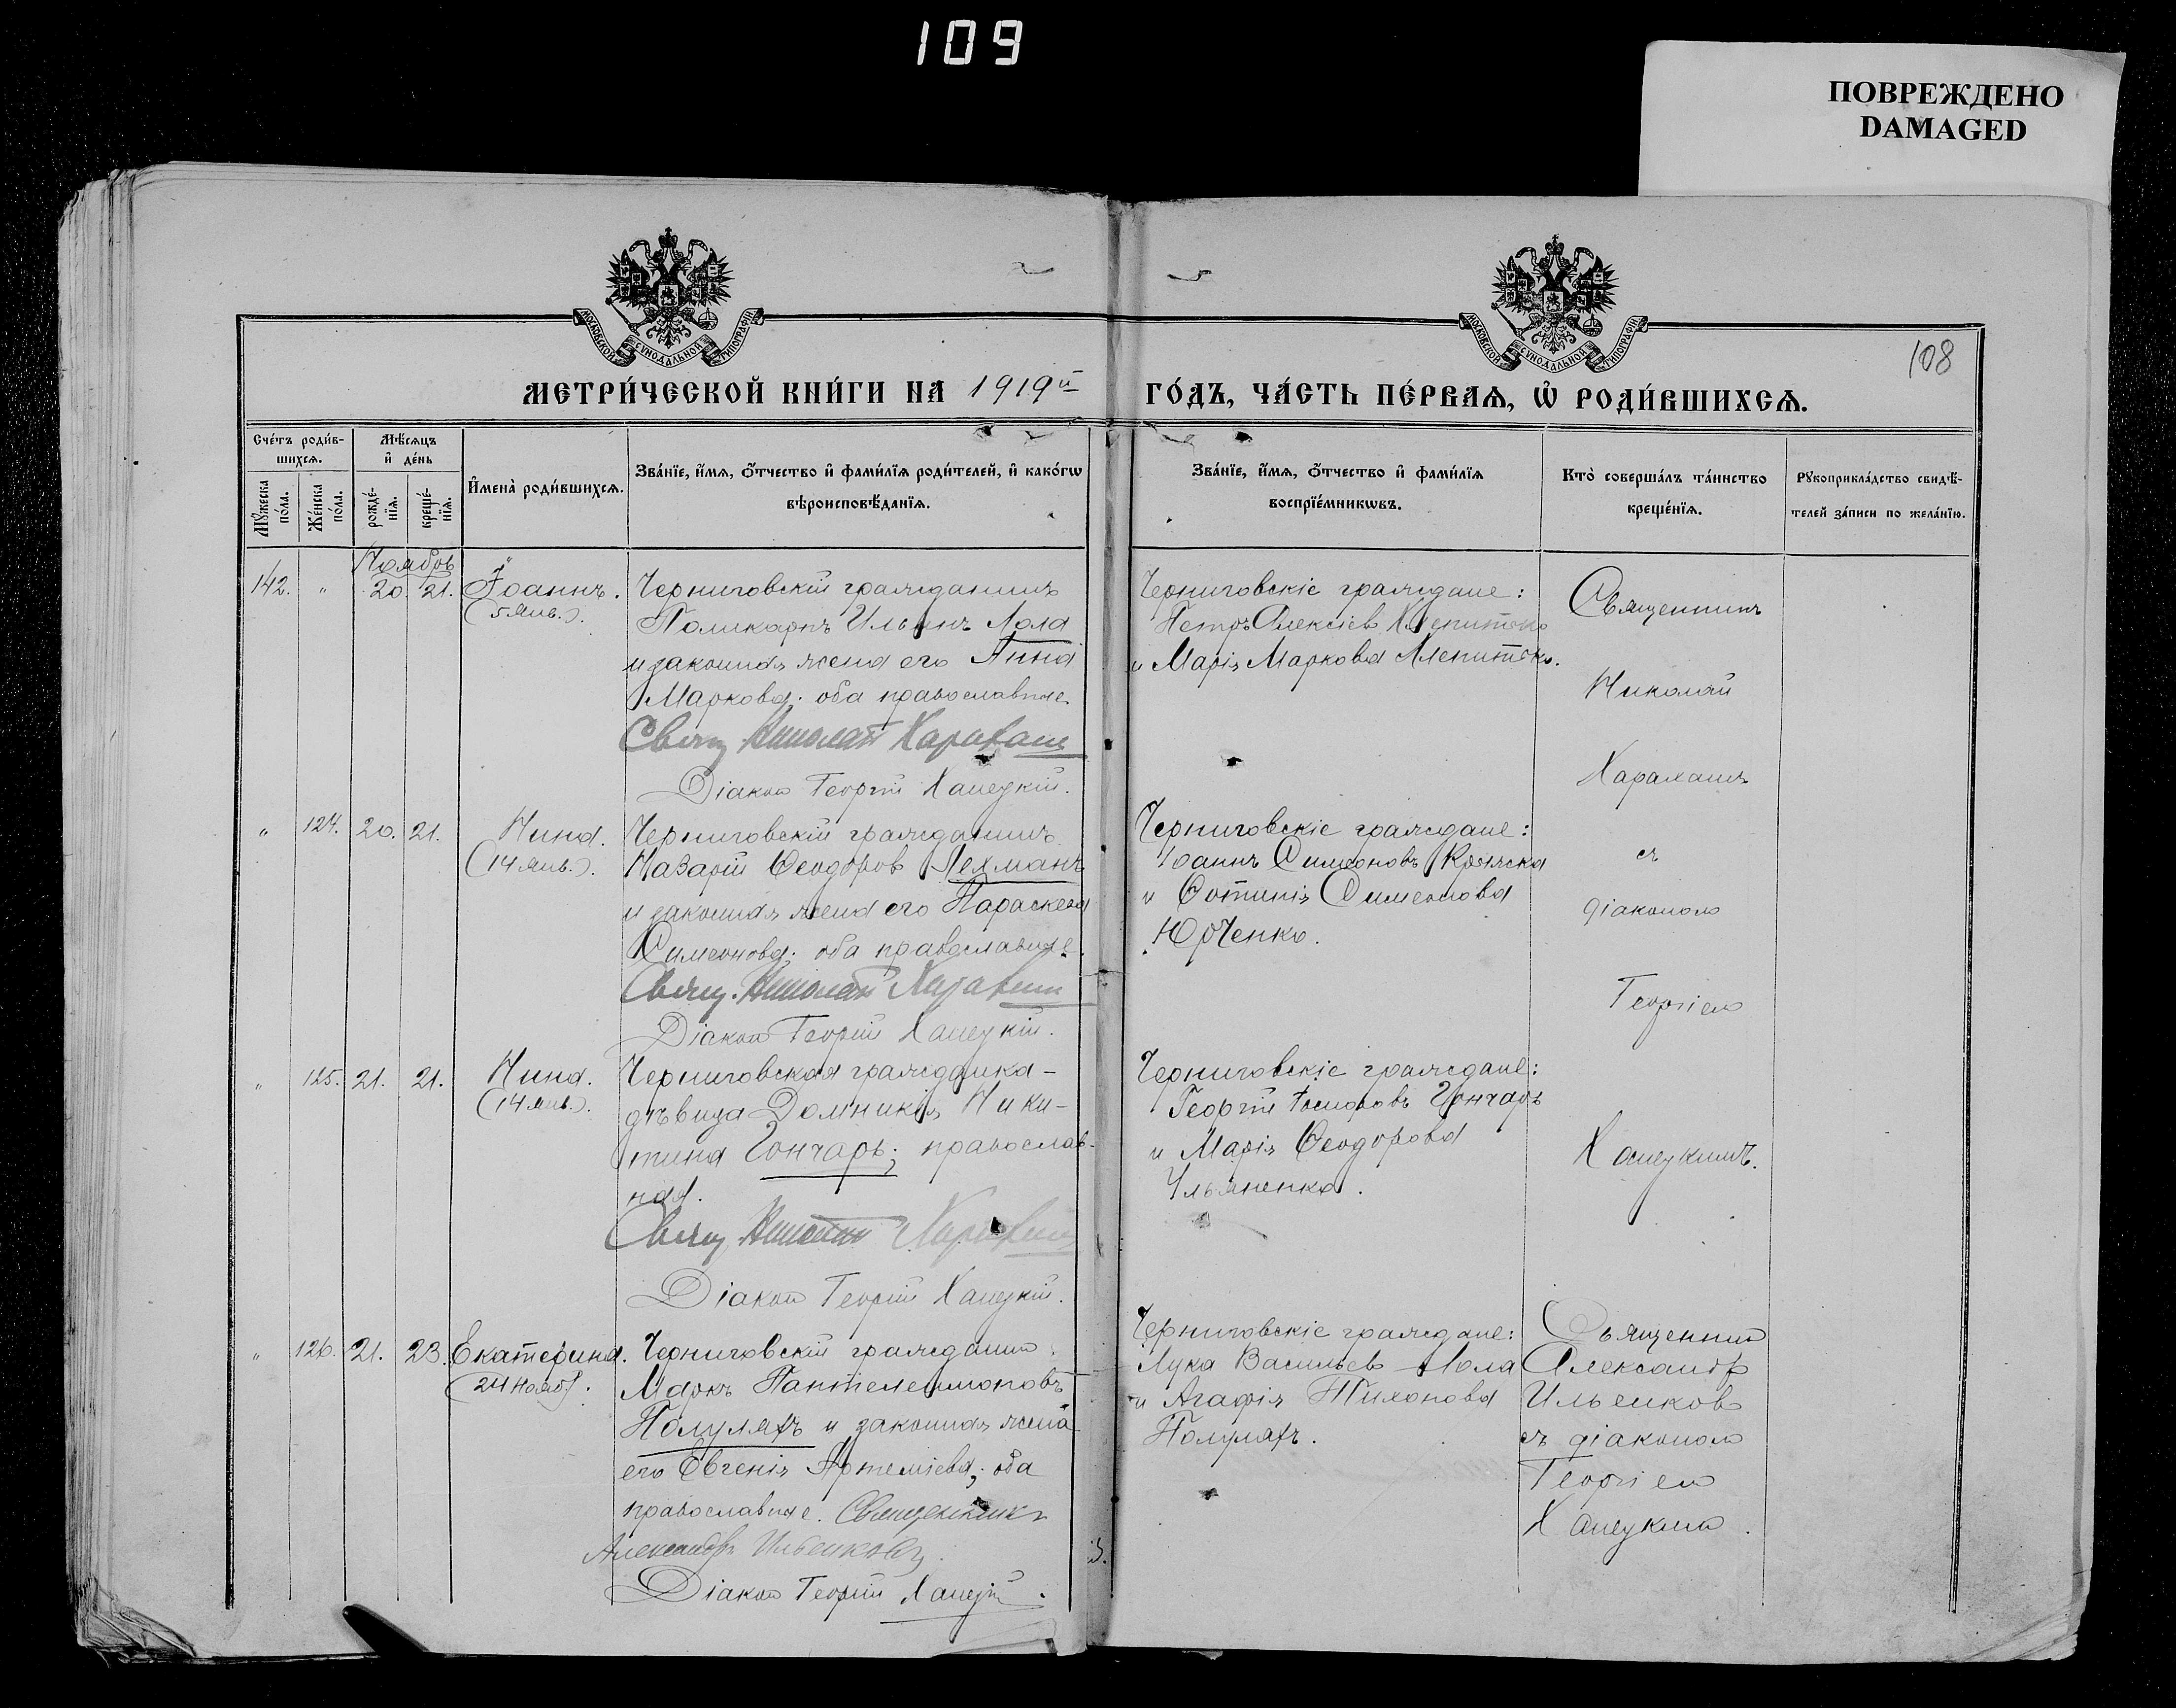 109
ПОВРЕЖДЕНО
DAMAGED
МОСКОВСКОЙ СУНОДАЛЬНОЙ ТИПОГРАФІИ
МОСКОВСКОЙ СУНОДАЛЬНОЙ ТИПОГРАФІИ
108
МЕТРИ́ЧЕСКОЙ КНИ́ГИ НА 1919й
ГО́ДЪ, ЧА́СТЬ ПЕ́РВАЯ, Ѡ҆ РОДИ́ВШИХСЯ.
Сче́тъ роди́в-
шихся.
Мѣ́сяцъ
и҆ де́нь
Мꙋ́жеска
по́ла.
Же́нска
по́ла.
рожде́-
нїя.
креще́-
нїя.
И҆мена̀ роди́вшихся.
Зва́нїе, и҆́мя, ѻ҆́тчество и҆ фами́лїя роди́телей, и҆ како́гѡ
вѣроисповѣ́данїя.
Зва́нїе, и҆́мя, ѻ҆́тчество и҆ фами́лїя
воспрїе́мникѡвъ.
Кто̀ соверша́лъ та́инство
креще́нїя.
Рꙋкоприкла́дство свидѣ́-
телей за́писи по жела́нїю.
Ноябрь
142. " 20. 21. Іоаннъ.
(5 Янв.).
Черниговскій гражданинъ
Поликарпъ Ильинъ Лола
и законная жена его Анна
Маркова; оба православные.
Свящ. Николай
Діаконъ Георгій Ханецкій.
Черниговскіе граждане:
Петръ Алексіевъ
и Марія Маркова
Священникъ
Николай
съ
діакономъ
Георгіемъ
Ханецкимъ.
" 124. 20. 21. Нина.
(14 Янв.).
Черниговскій гражданинъ
Назарій Ѳеодоровъ Лехманъ
и законная жена его Параскева
Симеонова; оба православные.
Свящ. Николай
Діаконъ Георгій Ханецкій.
Черниговскіе граждане:
Іоаннъ Симеоновъ
и Фотинія Симеонова
Юрченко.
" 125. 21. 21. Нина.
(14 Янв.).
Черниговская гражданка –
дѣвица Домникія Ники-
тина Гончаръ; православ-
ная.
Свящ. Николай
Діаконъ Георгій Ханецкій.
Черниговскіе граждане:
Георгій Гончаръ
и Марія Ѳеодорова
Ульяненко.
" 126. 21. 23. Екатерина.
(24 Нояб.).
Черниговскій гражданинъ
Маркъ Пантелеимоновъ
Полуляхъ и законная жена
его Евгенія Артеміева; оба
православные. Священникъ
Александръ Ильенковъ.
Діаконъ Георгій Ханецкій.
Черниговскіе граждане:
Лука Васильевъ Лола
и Агафія Тихонова
Полуляхъ.
Священникъ
Александръ
Ильенковъ
съ діакономъ
Георгіемъ
Ханецкимъ.